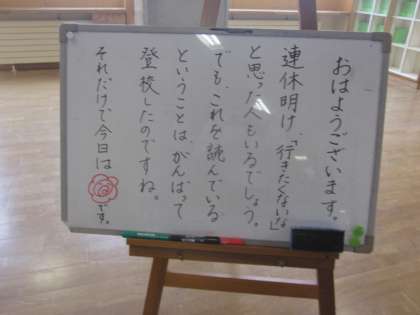 おはようございます。
連休明け、「行きたくないな」
と思った人もいるでしょう。
でも、これを読んでいる
ということは、がんばって
登校したのですね。
それだけで今日は
です。